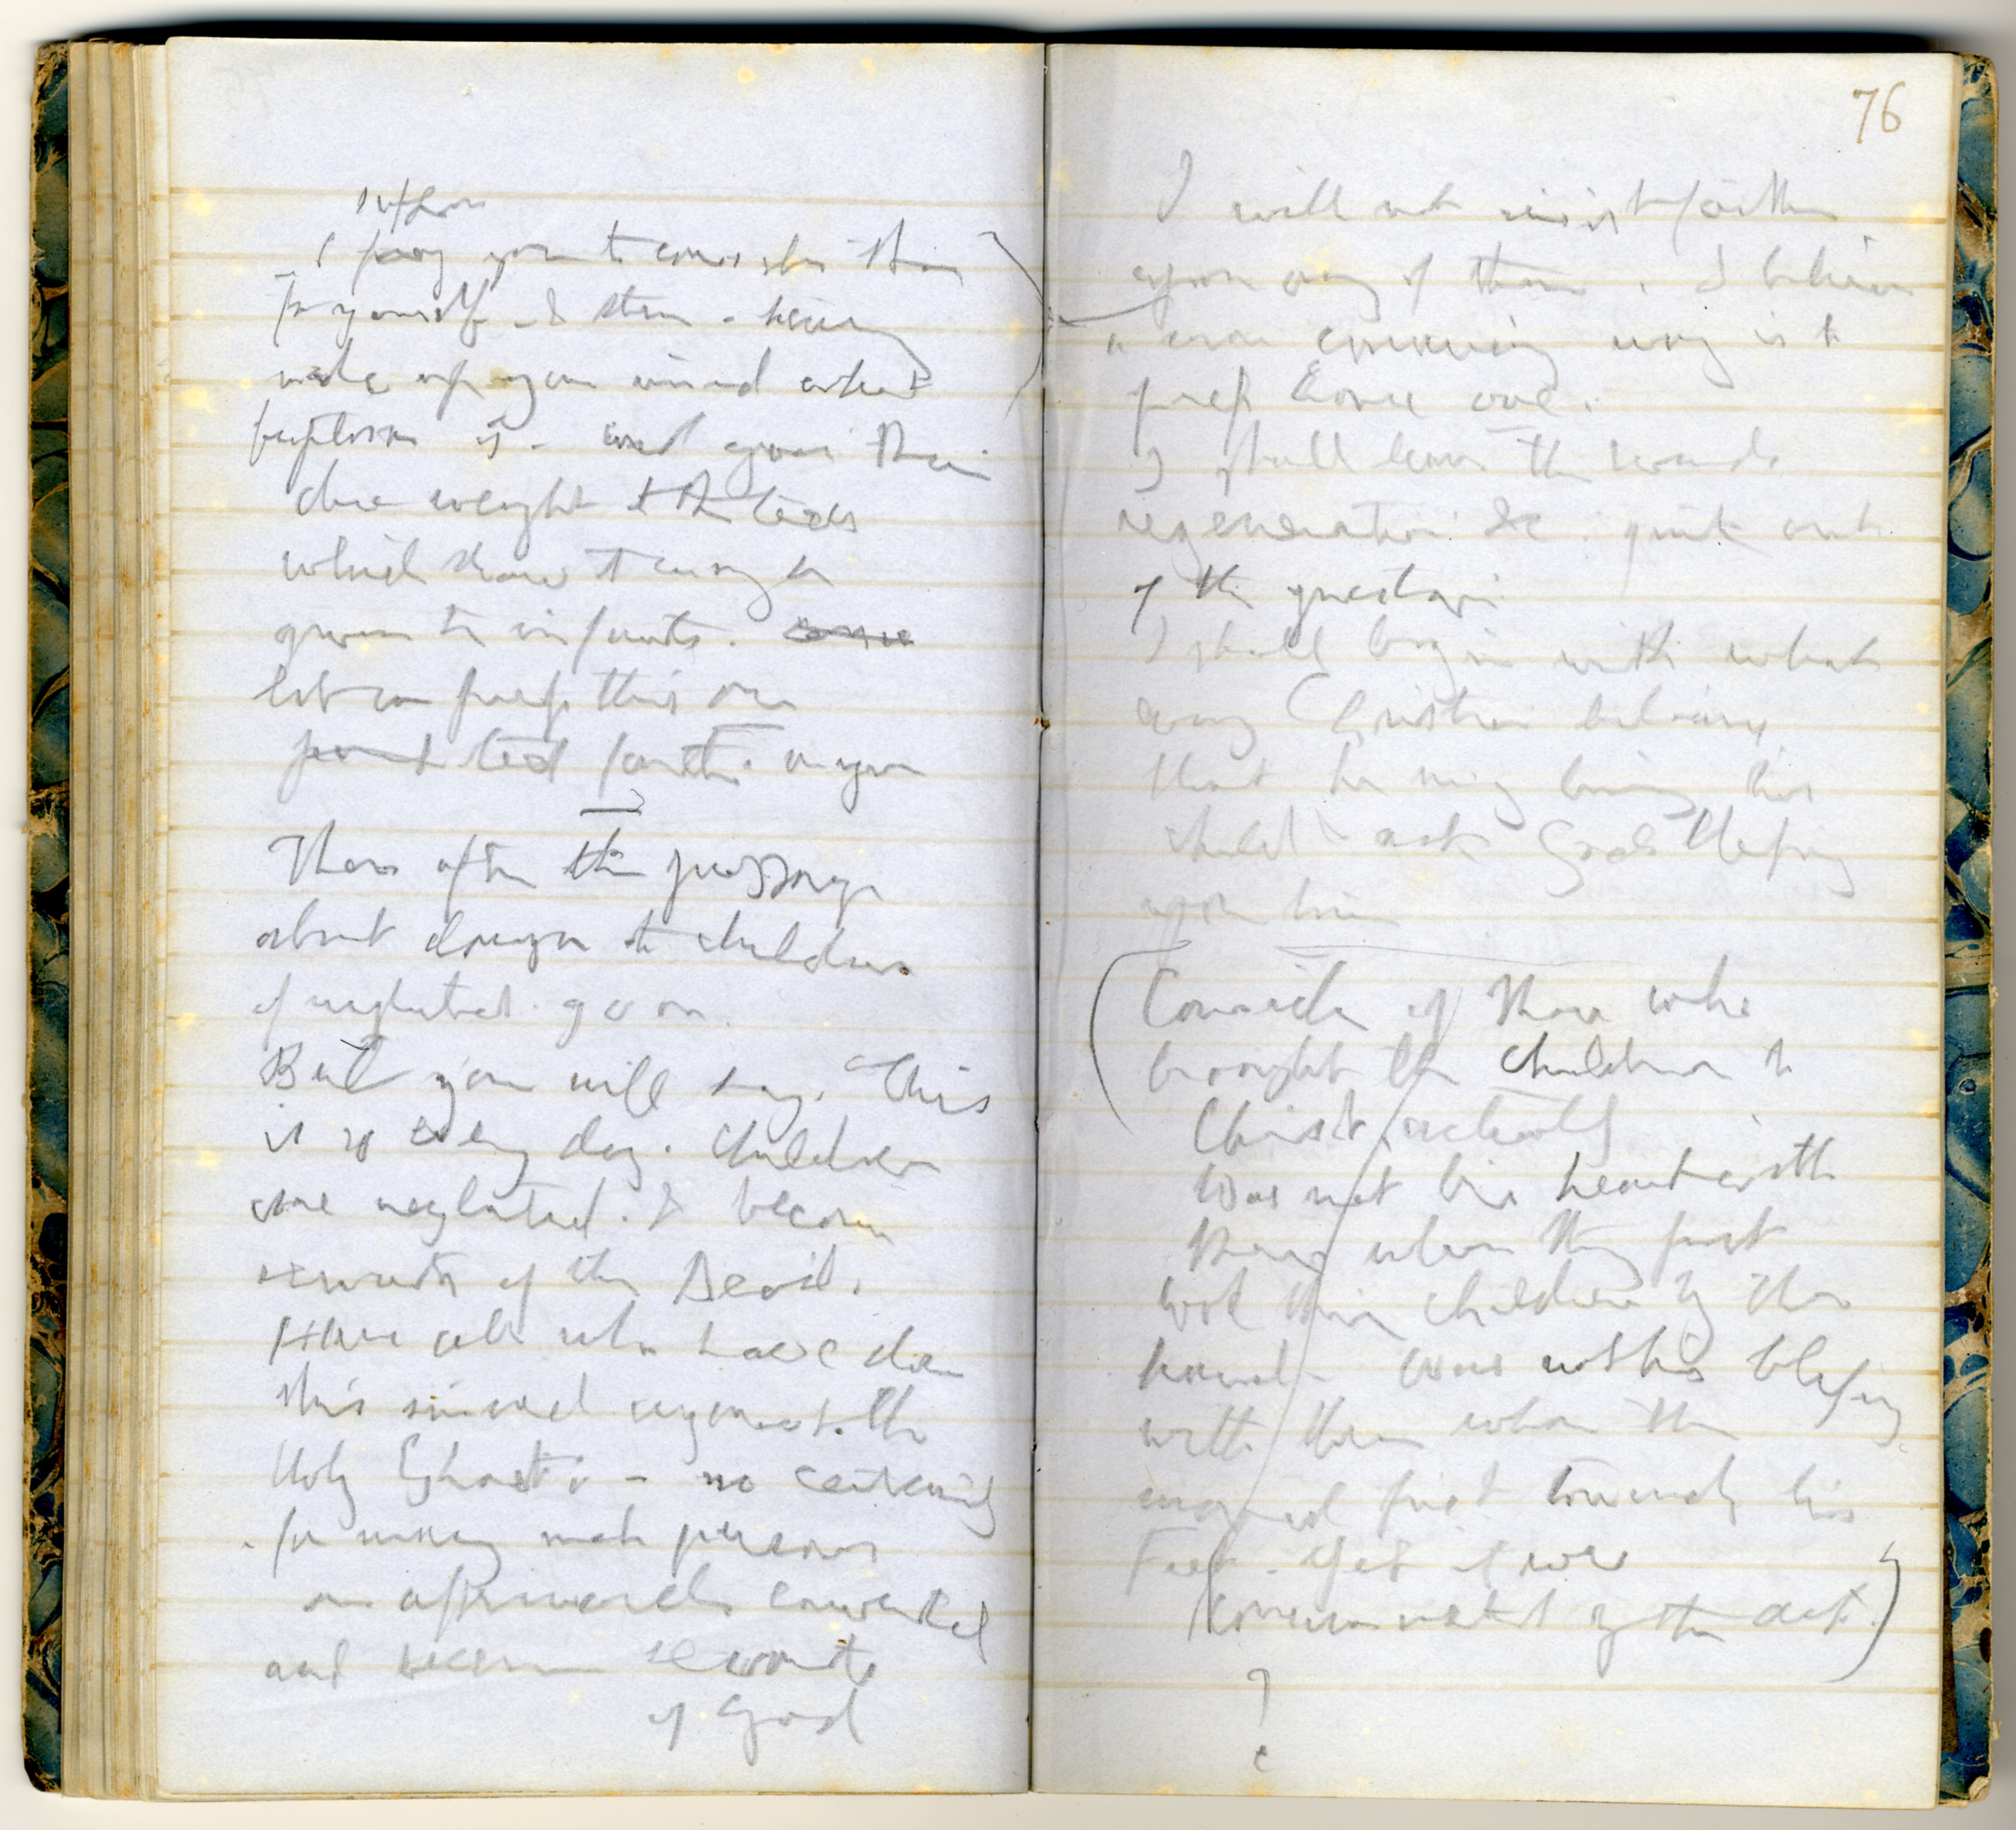 I pray you to consider these
for yourself - & then - having
made up your mind what
baptism is - and given their
due weight to the texts
which show it may be
given to infants.
let me press this one
point text further on you
Then after the passage
about danger to children
if neglected. go on.
But you will say. "This
is so every day. Children
are neglected. & become
servants of the Devil.
Have all who have done
this sinned against the
Holy Ghost - no certainly
for many such persons
are afterwards converted
and become servants
of God
76
I will not insist further
upon any of them. I believe
a more convincing way is to
press home one.
I shall leave the words
regeneration &c. quite out
of the question
I shall begin with what
every Christian believes,
that he may bring his
child & ask Gods blessing
upon him
(Consider if those who
brought the children to
Christ actually
Was not his heart with
them when they first
took their children by the
hand - was not his blessing
with them when they
moved first towards his
Feet. Yet it was
consummated by the act.)
?